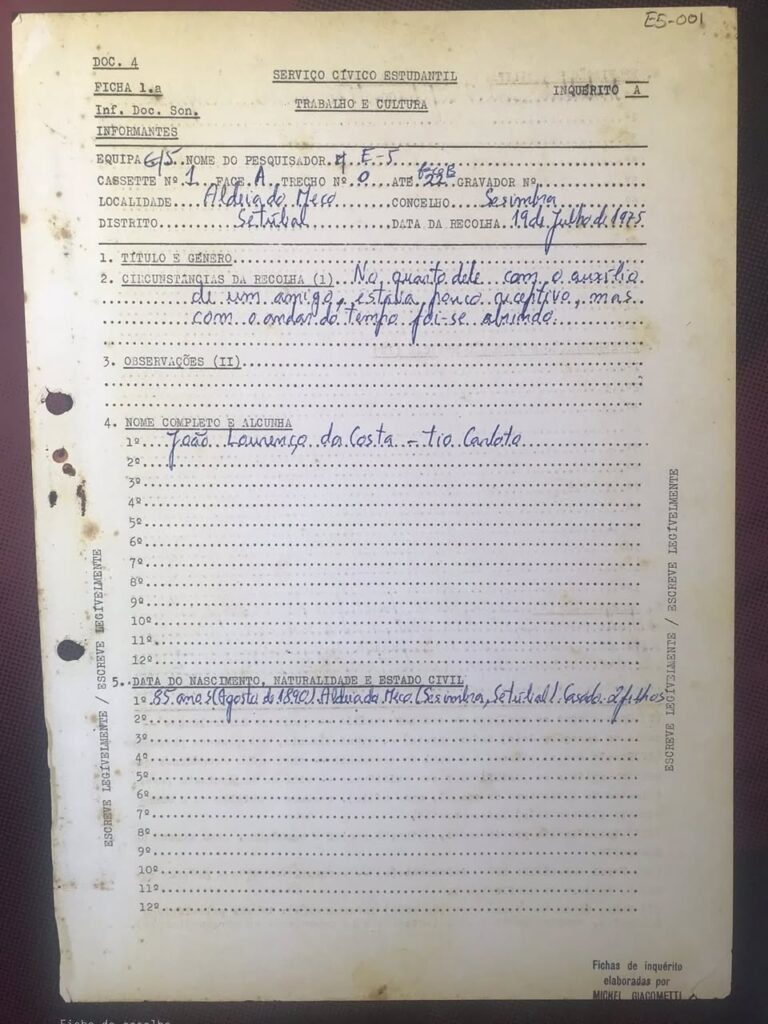 E5-001
DOC. 4
SERVIÇO CÍVICO ESTUDANTIL
FICHA 1.a
INQUÉRITO A
TRABALHO E CULTURA
Inf. Doc. Son.
INFORMANTES
EQUIPA 6/5 NOME DO PESQUISADOR E-5
CASSETTE Nº 1 FACE A TRECHO Nº 0 ATÉ 22 face B GRAVADOR Nº
LOCALIDADE Aldeia do Meco CONCELHO Sesimbra
DISTRITO Setúbal DATA DA RECOLHA 19 de Julho de 1975
1. TÍTULO E GÉNERO
2. CIRCUNSTÂNCIAS DA RECOLHA (1) No quarto dele com o auxílio
de um amigo, estava pouco receptivo, mas
com o andar do tempo foi-se abrindo.
3. OBSERVAÇÕES (II)
4. NOME COMPLETO E ALCUNHA
1º João Lourenço da Costa - tio Carlota
2º
3º
4º
5º
6º
7º
8º
9º
10º
11º
12º
5. DATA DO NASCIMENTO, NATURALIDADE E ESTADO CIVIL
1º 85 anos (Agosto de 1890) Aldeia do Meco (Sesimbra, Setúbal) Casado - 2 filhos
2º
3º
4º
5º
6º
7º
8º
9º
10º
11º
12º
ESCREVE LEGÍVELMENTE / ESCREVE LEGÍVELMENTE
ESCREVE LEGÍVELMENTE / ESCREVE LEGÍVELMENTE
Fichas de inquérito
elaboradas por
MICHEL GIACOMETTI